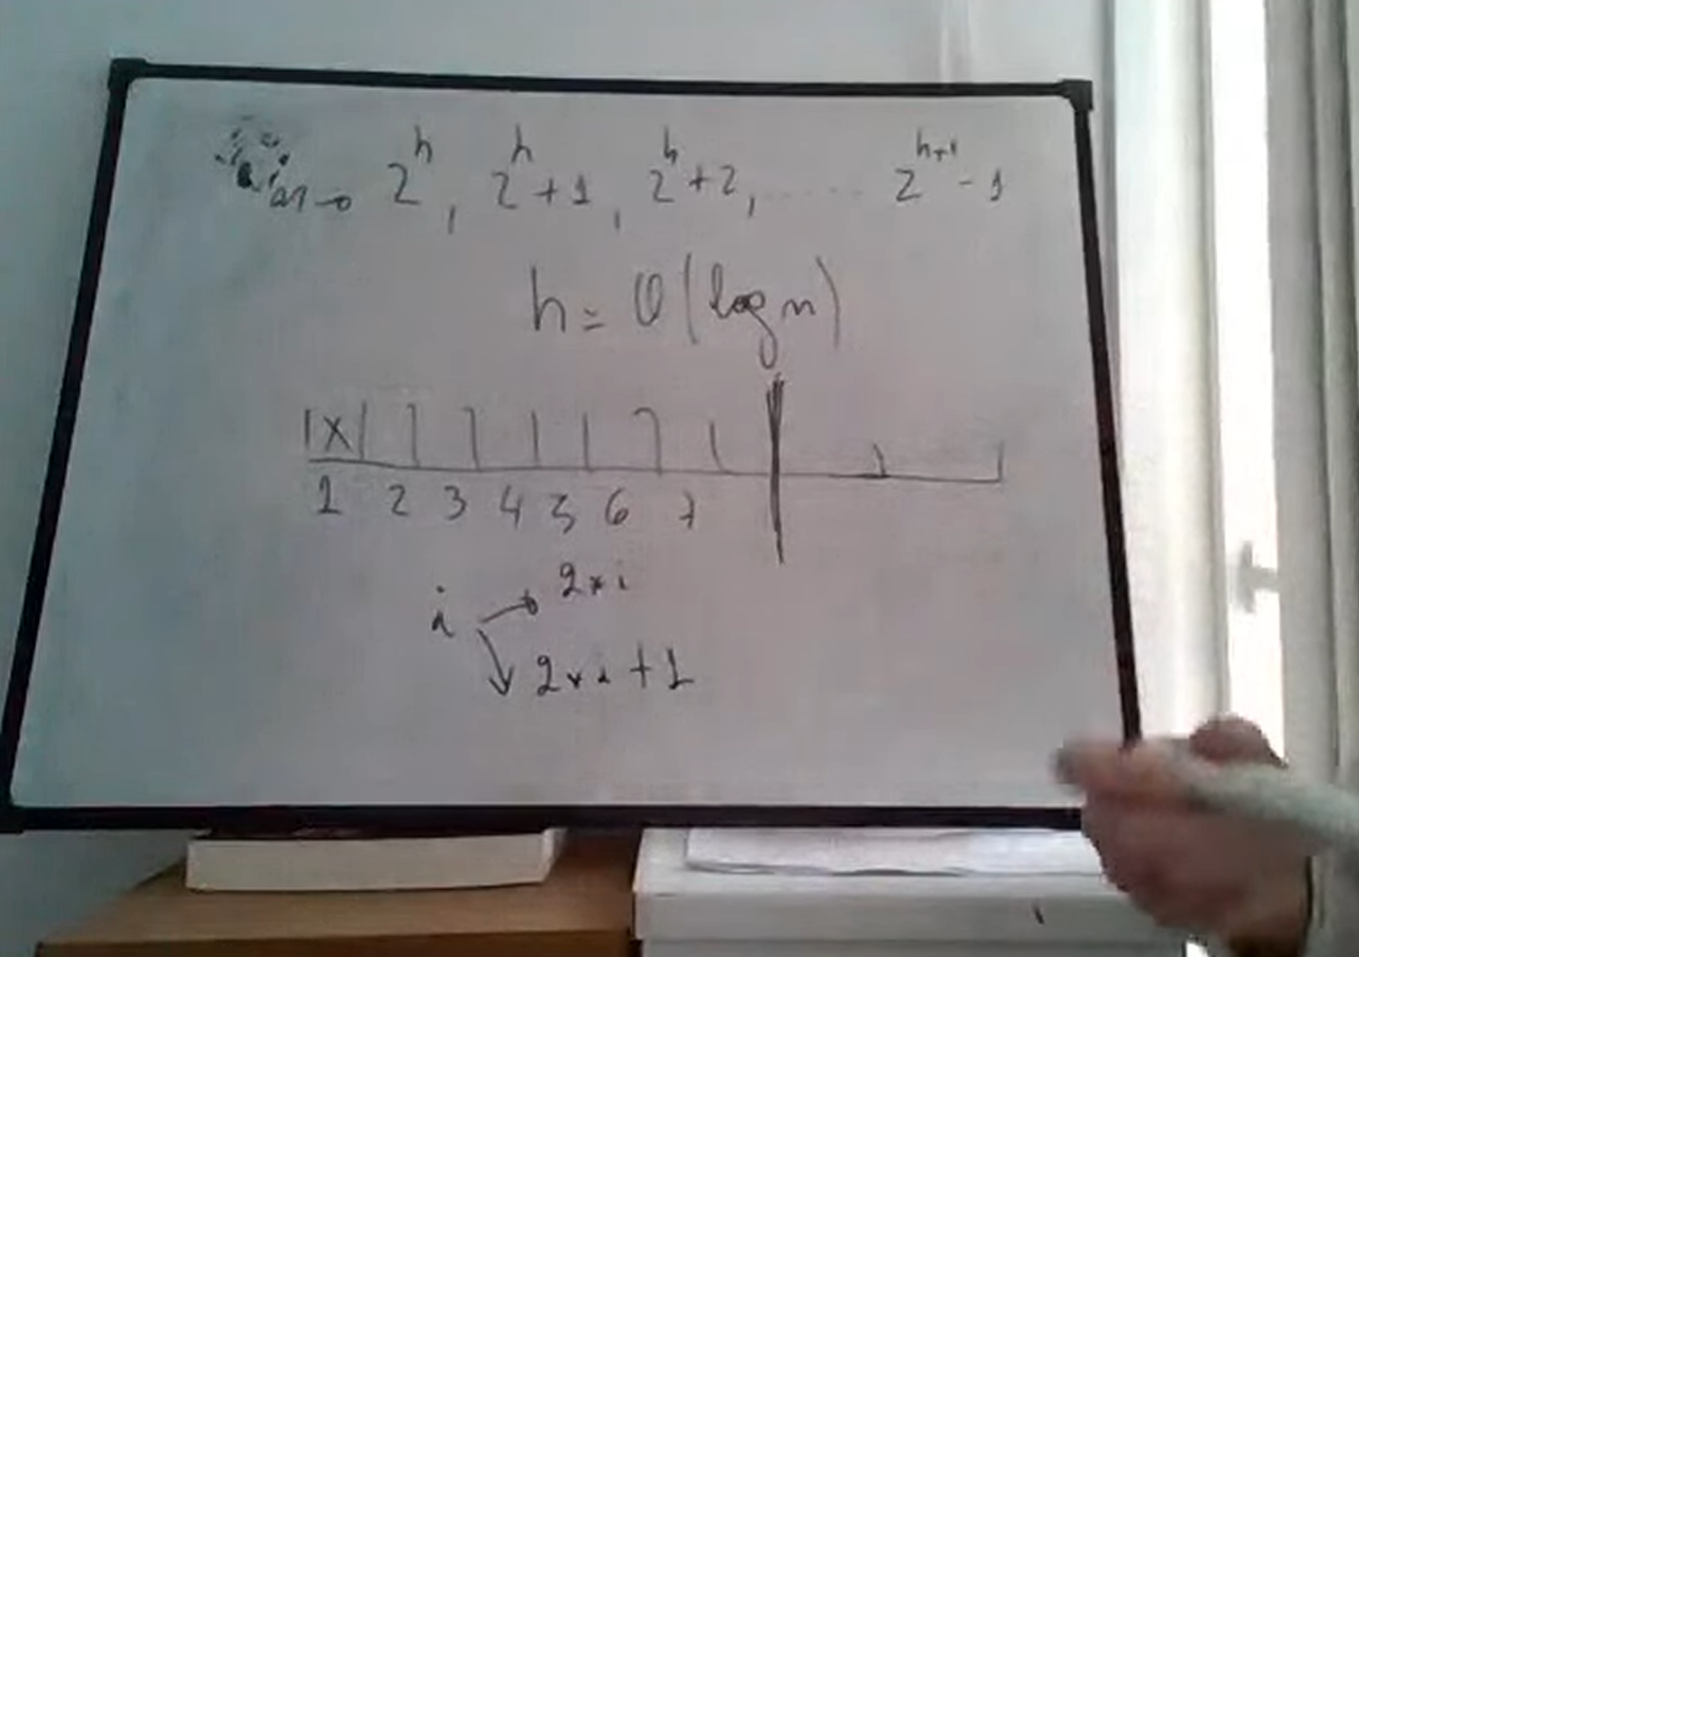 n → 2^h, 2^h + 1, 2^h + 2, ...... 2^(h+1) - 1
h = O(log n)
X
1 2 3 4 5 6 7
i → 2*i
↘ 2*i + 1